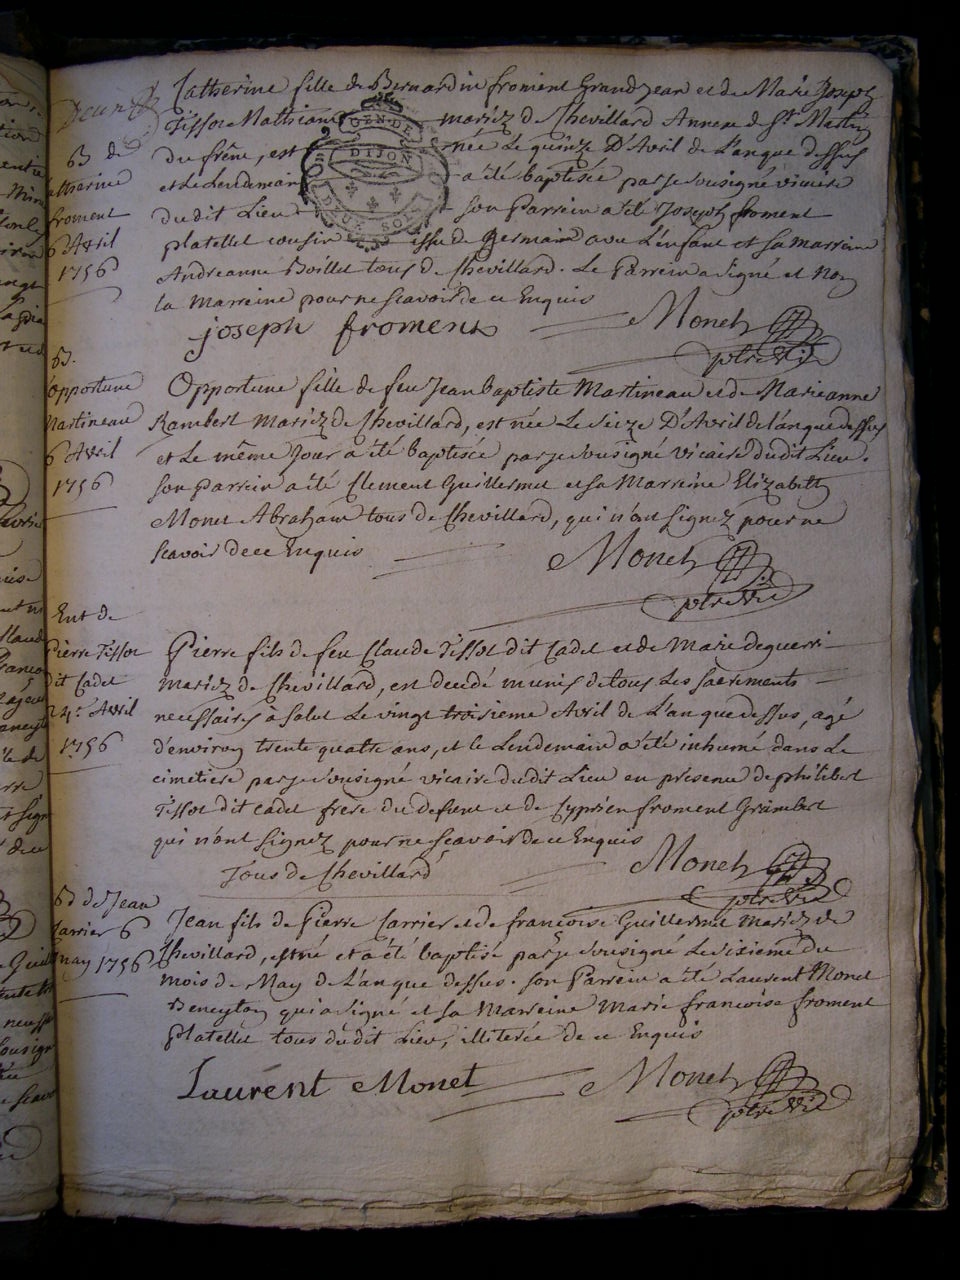 Catherine fille de Bernardin froment Grandjean et de Marie Joseph
Tissot Mathian mariez de Chevillard Annexe de St Martin
du frêne, est née Le quinze D'Avril de L'anque dessus
et Le Lendemain a été baptisée par je sousigné vicaire
dudit Lieu son Parrein a été Joseph froment
platellet cousin issu de germain avec L'enfant et sa marreine
Andreanne Boillet tous de Chevillard. Le Parrein a signé et non
la Marreine pour ne scavoir de ce Enquis
B de
Catherine
froment
16 Avril
1756
GEN DE
DIJON
DEUX SOLS
joseph froment
Monet
ptre vic
B.
Opportune
Martineau
16 Avril
1756
Opportune fille de feu Jean baptiste Martineau et de Marieanne
Rambert Mariez de Chevillard, est née Le seize D'Avril de l'anque dessus
et Le même Jour a été baptisée par je sousigné vicaire dudit Lieu.
son parrein a été Clement Guillermet et sa Marreine Elizabeth
Monet Abraham tous de Chevillard, qui n'ont signez pour ne
scavoir de ce Enquis
Monet
ptre vic
Ent de
Pierre Tissot
dit Cadet
24e Avril
1756
Pierre fils de feu Claude Tissot dit Cadet et de Marie deguerri
mariez de Chevillard, est decédé munis de tous Les sacrements
necessaires à salut Le vingt troisieme Avril de L'an que dessus, agé
d'environ trente quatre ans, et le Lendemain a été inhumé dans Le
cimetiere par je sousigné vicaire dudit Lieu en présence de philibert
Tissot dit cadet frere du defunt et de Cyprien froment Grambert
qui n'ont signez pour ne scavoir de ce Enquis
Tous de Chevillard
Monet
ptre vic
B de Jean
Carrier 6
may 1756
Jean fils de Pierre Carrier et de francoise Guillermet mariez de
Chevillard, est né et a été baptisé par je sousigné Le sixieme du
mois de May de L'anque dessus. son Parrein a été Laurent Monet
Beneyton qui a signé et sa Marreine Marie francoise froment
platellet tous dudit Lieu, illiterée de ce Enquis
Laurent Monet
Monet
ptre vic